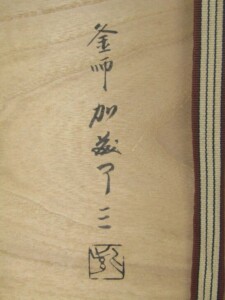 釜師 加茂了三